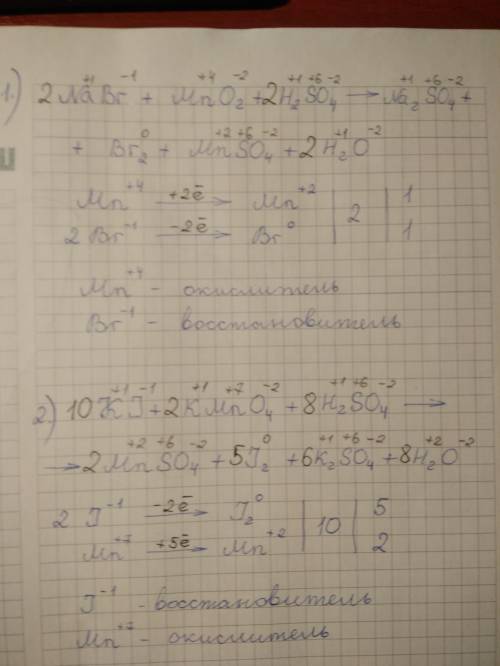 1.) 2Na⁺¹Br⁻¹ + Mn⁺⁴O₂⁻² + 2H₂⁺¹S⁺⁶O₄⁻² → Na₂⁺¹S⁺⁶O₄⁻² +
+ Br₂⁰ + Mn⁺²S⁺⁶O₄⁻² + 2H₂⁺¹O⁻²
Mn⁺⁴ +2ē → Mn⁺² | 2 | 1
2Br⁻¹ -2ē → Br⁰ | | 1
Mn⁺⁴ - окислитель
Br⁻¹ - восстановитель
2.) 10K⁺¹J⁻¹ + 2K⁺¹Mn⁺⁷O₄⁻² + 8H₂⁺¹S⁺⁶O₄⁻² →
→ 2Mn⁺²S⁺⁶O₄⁻² + 5J₂⁰ + 6K₂⁺¹S⁺⁶O₄⁻² + 8H₂⁺²O⁻²
2J⁻¹ -2ē → J₂⁰ | 10 | 5
Mn⁺⁷ +5ē → Mn⁺² | | 2
J⁻¹ - восстановитель
Mn⁺⁷ - окислитель